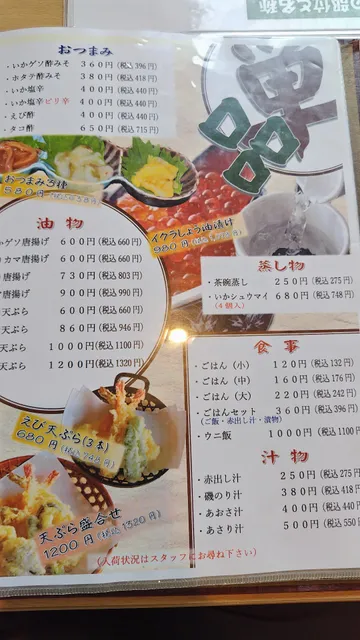 単品
おつまみ
・いかゲソ酢みそ 360円(税込396円)
・ホタテ酢みそ 380円(税込418円)
・いか塩辛 400円(税込440円)
・いか塩辛ピリ辛 400円(税込440円)
・えび酢 400円(税込440円)
・タコ酢 650円(税込715円)
おつまみ3種
580円
イクラしょう油漬け
980円
油物
ゲソ唐揚げ 600円(税込660円)
カマ唐揚げ 600円(税込660円)
唐揚げ 730円(税込803円)
唐揚げ 900円(税込990円)
天ぷら 600円(税込660円)
天ぷら 860円(税込946円)
天ぷら 1000円(税込1100円)
天ぷら 1200円(税込1320円)
えび天ぷら(3本)
680円(税込748円)
天ぷら盛合せ
1200円(税込1320円)
蒸し物
・茶碗蒸し 250円(税込275円)
・いかシュウマイ 680円(税込748円)
(4個入)
食事
・ごはん(小) 120円(税込132円)
・ごはん(中) 160円(税込176円)
・ごはん(大) 220円(税込242円)
・ごはんセット 360円(税込396円)
(ご飯・赤出し汁・漬物)
・ウニ飯 1000円(税込1100円)
汁物
・赤出し汁 250円(税込275円
・磯のり汁 380円(税込418円
・あおさ汁 400円(税込440円
・あさり汁 500円(税込550円
(入荷状況はスタッフにお尋ね下さい)